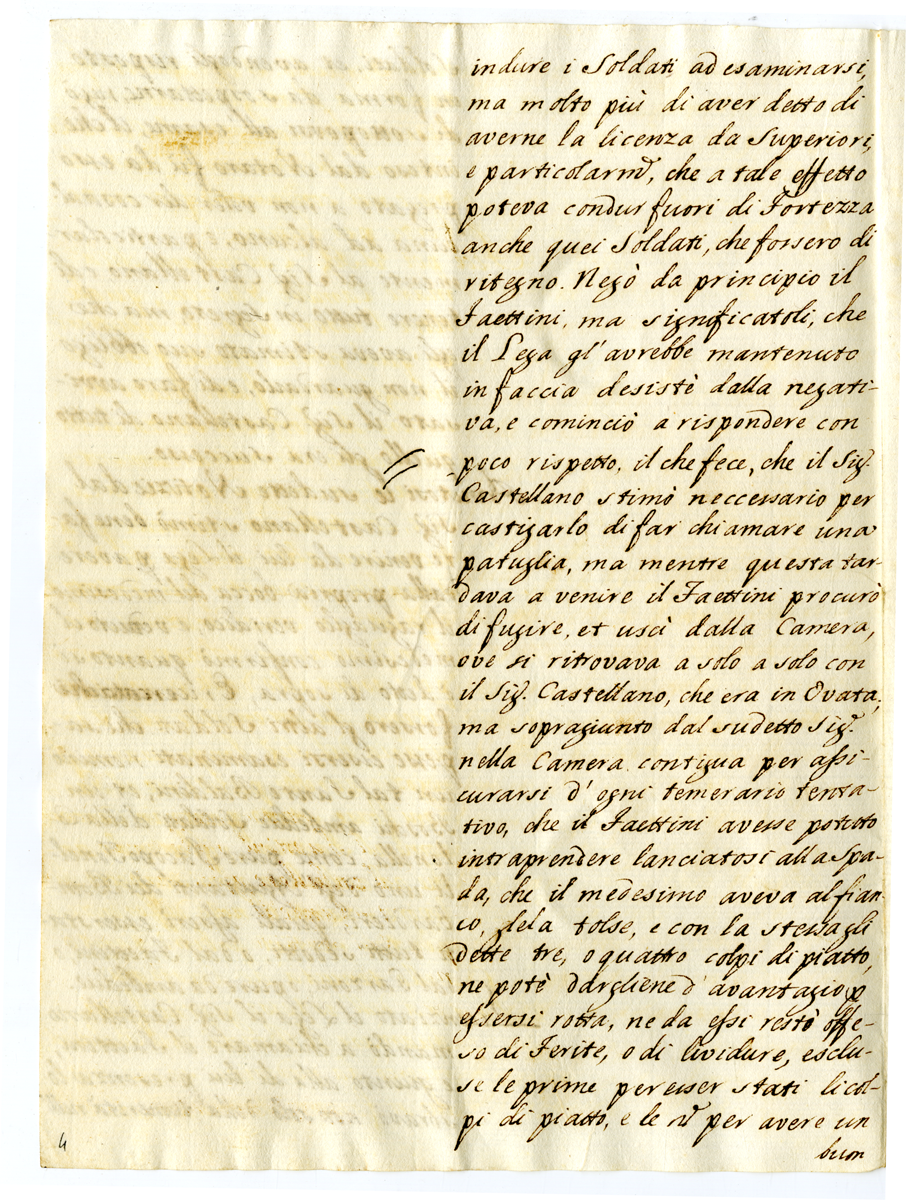 indure i Soldati ad esaminarsi,
ma molto più di aver detto di
averne la licenza da Superiori,
e particolarm̃, che a tale effetto
poteva condur fuori di Fortezza
anche quei Soldati, che fossero di
ritegno. Negò da principio il
Faettini, ma significatoli, che
il Lega gl' avrebbe mantenuto
in faccia desistè dalla negati-
va, e cominciò a rispondere con
poco rispetto, il che fece, che il Sig.
Castellano stimò neccessario per
castigarlo di far chiamare una
patuglia, ma mentre questa tar-
dava a venire il Faettini procurò
di fugire, et uscì dalla Camera,
ove si ritrovava a solo a solo con
il Sig. Castellano, che era in Ovata,
ma sopragiunto dal sudetto Sig.
nella Camera contigua per assi-
curarsi d' ogni temerario tenta-
tivo, che il Faettini avesse potuto
intraprendere lanciatosi alla Spa-
da, che il medesimo aveva al fian-
co, sela tolse, e con la stessa gli
dette tre, o quattro colpi di piatto,
ne potè dargliene d' avantagio p
essersi rotta, ne da essi restò offe-
so di Ferite, o di lividure, esclu-
se le prime per esser stati li col-
pi di piatto, e le per avere un
buon
4